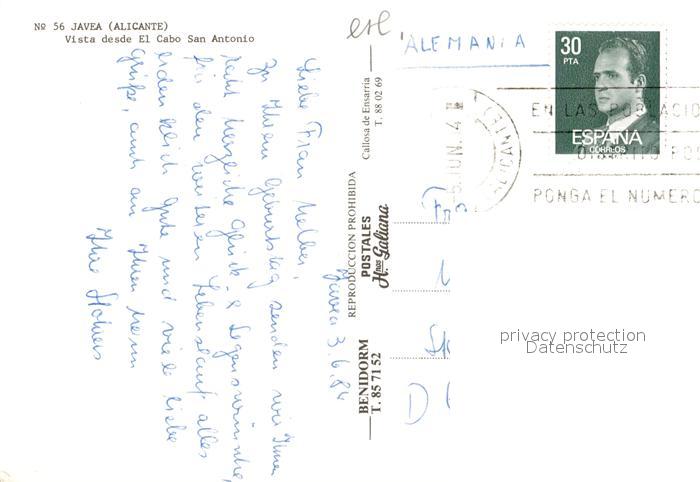 Nº 56 JAVEA (ALICANTE)
Vista desde El Cabo San Antonio
Javea 3.6.84
Liebe Frau
zu Ihrem Geburtstag senden wir Ihnen
recht herzliche Glück- & Segenswünsche,
für den weiteren Lebenslauf alles
Gute und viele liebe
Grüße, auch an Ihren
Ihre
REPRODUCCION PROHIBIDA
POSTALES
Hnos Galiana
Callosa de Ensarria
T. 88 02 69
BENIDORM
T. 85 71 52
ALEMANIA
30
PTA
ESPAÑA
CORREOS
JUN. 4
EN LAS POBLACIO
PONGA EL NUMERO
Fr
D
privacy protection
Datenschutz